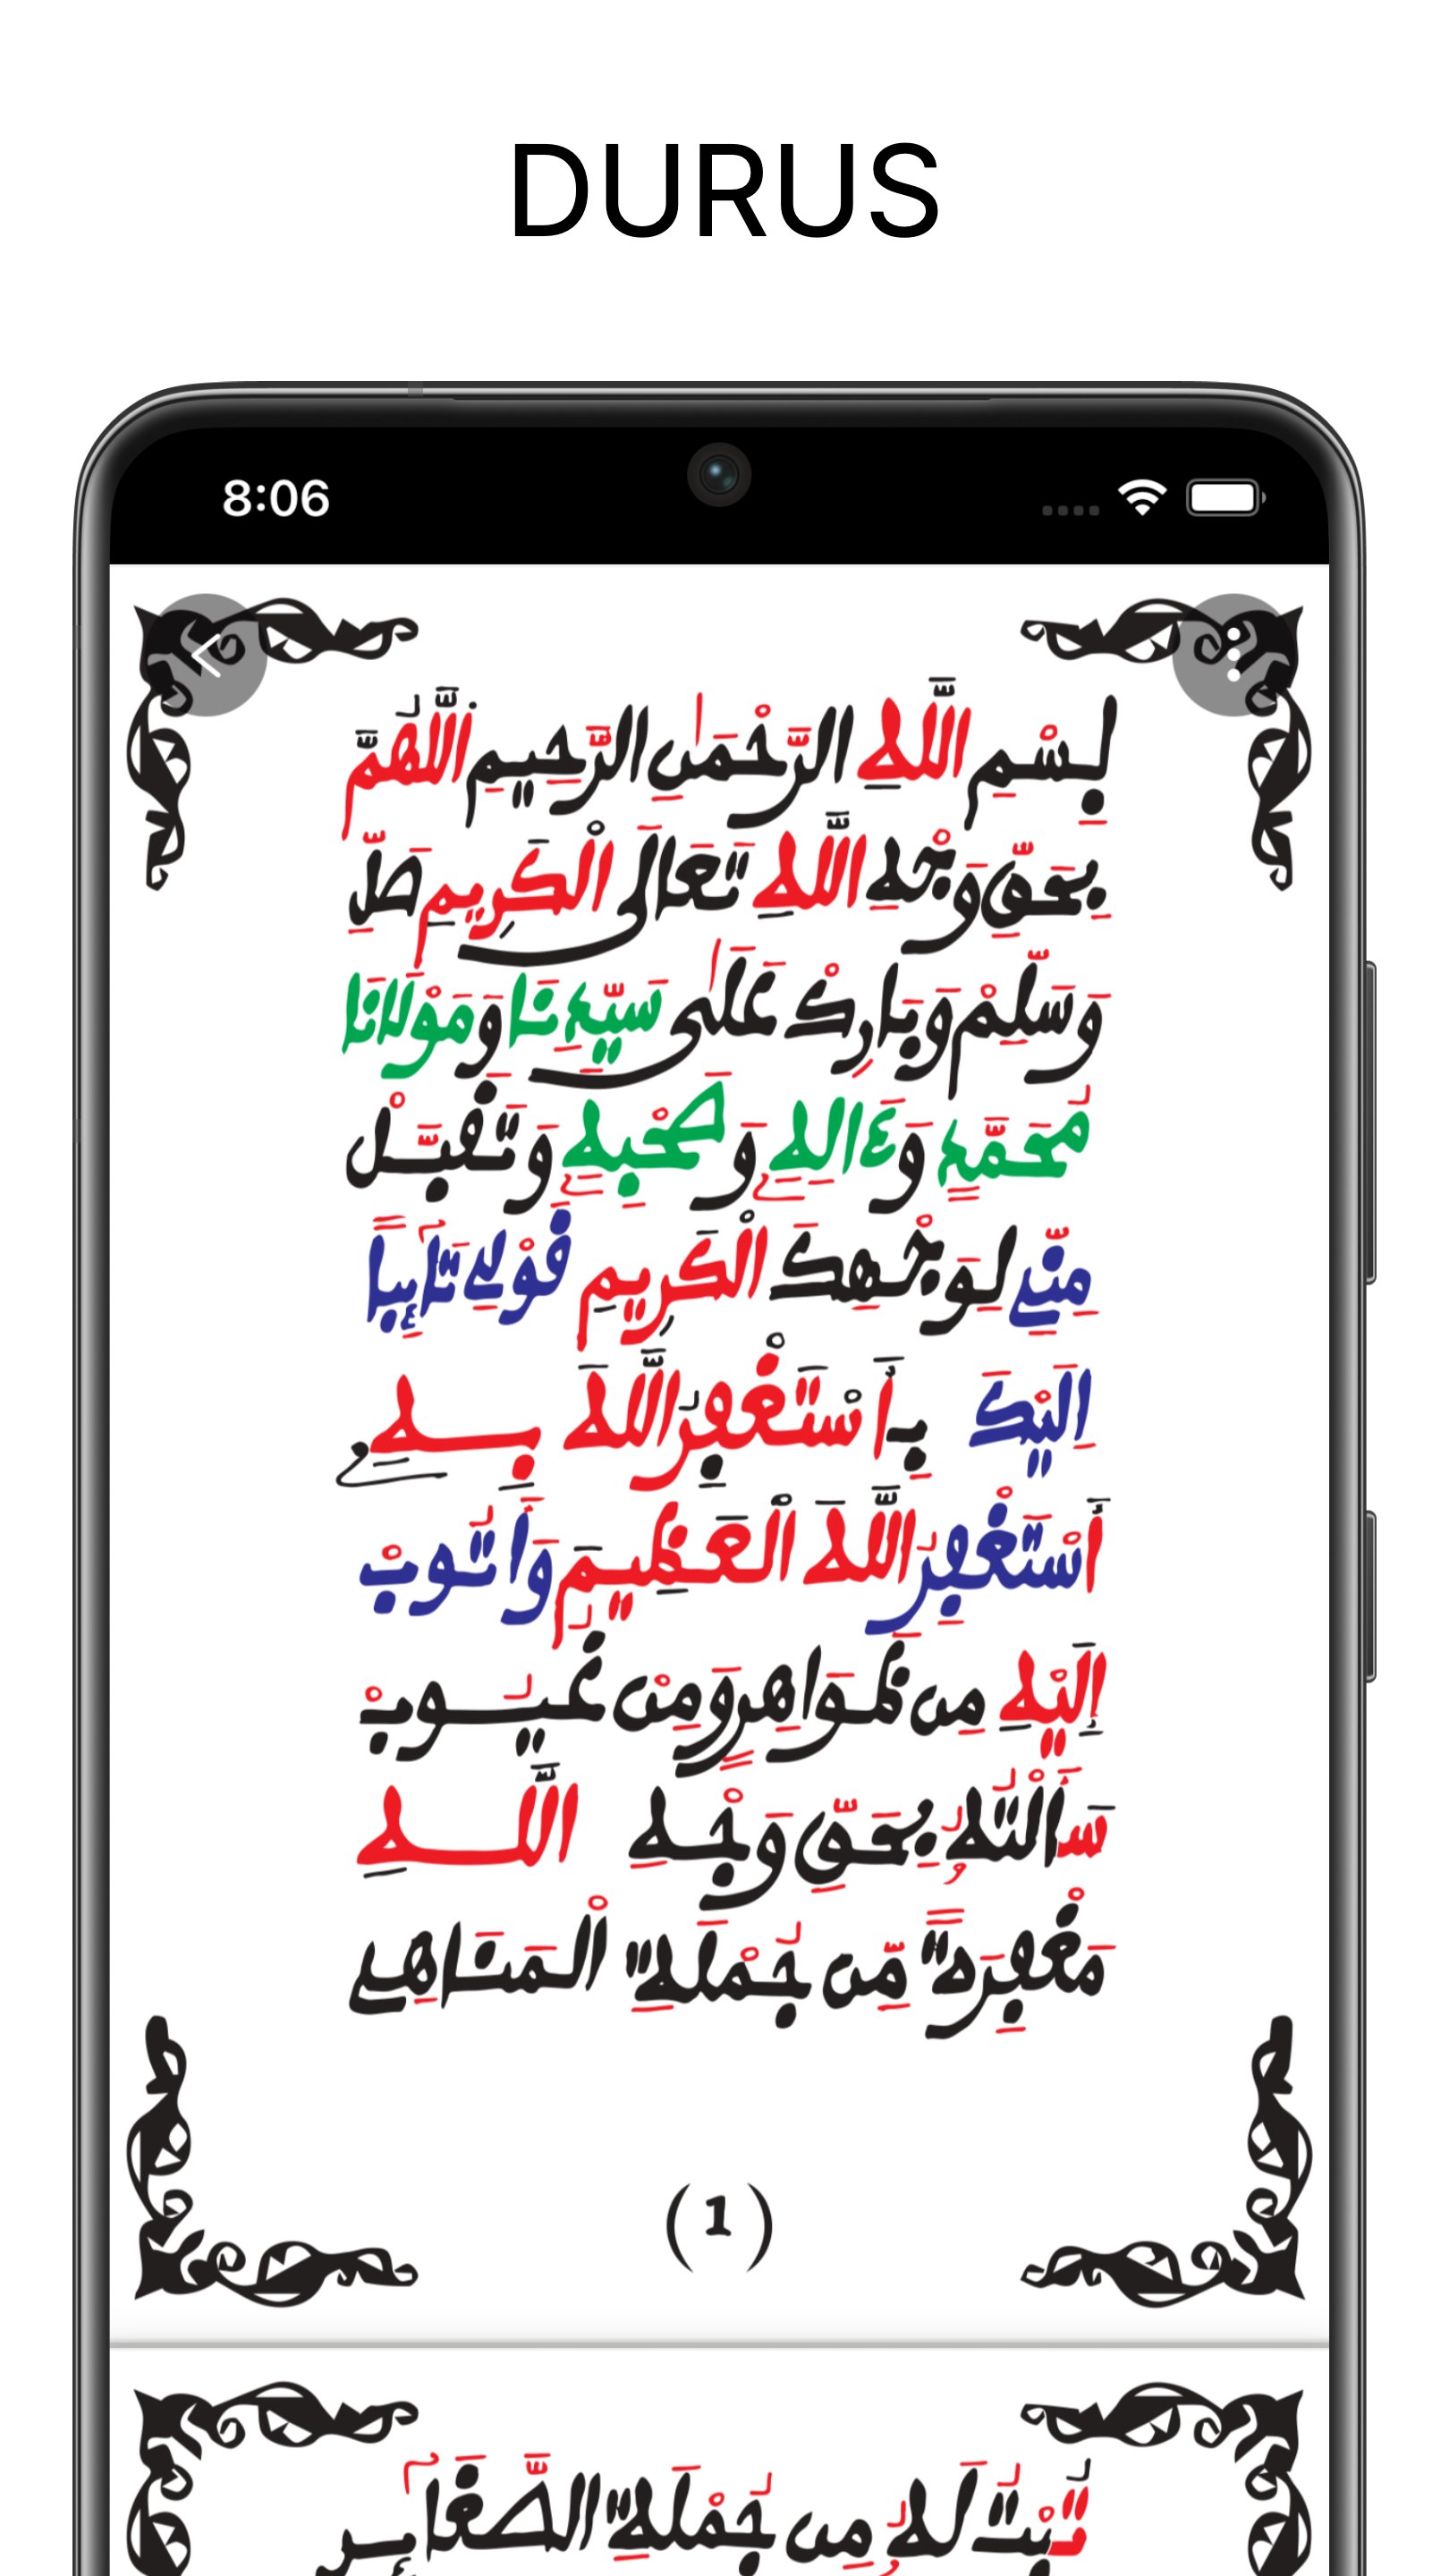 DURUS
8:06
بِسْمِ اللَّهِ الرَّحْمَٰنِ الرَّحِيمِ اللَّهُمَّ
بِحَقِّ وَجْهِ اللَّهِ تَعَالَى الْكَرِيمِ صَلِّ
وَسَلِّمْ وَبَارِكْ عَلَىٰ سَيِّدِنَا وَمَوْلَانَا
مُحَمَّدٍ وَءَالِهِ وَصَحْبِهِ وَتَقَبَّلْ
مِنِّي لِوَجْهِكَ الْكَرِيمِ قَوْلِي تَائِبًا
اِلَيْكَ بِأَسْتَغْفِرُ اللَّهَ بِهِ
أَسْتَغْفِرُ اللَّهَ الْعَظِيمَ وَأَتُوبْ
إِلَيْهِ مِن ظَوَاهِرٍ وَمِنْ غُيُوبْ
سَأَلْتُهُ بِحَقِّ وَجْهِ اللَّهِ
مَغْفِرَةً مِّن جُمْلَةِ الْمَنَاهِي
(1)
تُبْتُ لَهُ مِن جُمْلَةِ الصَّغَائِرِ